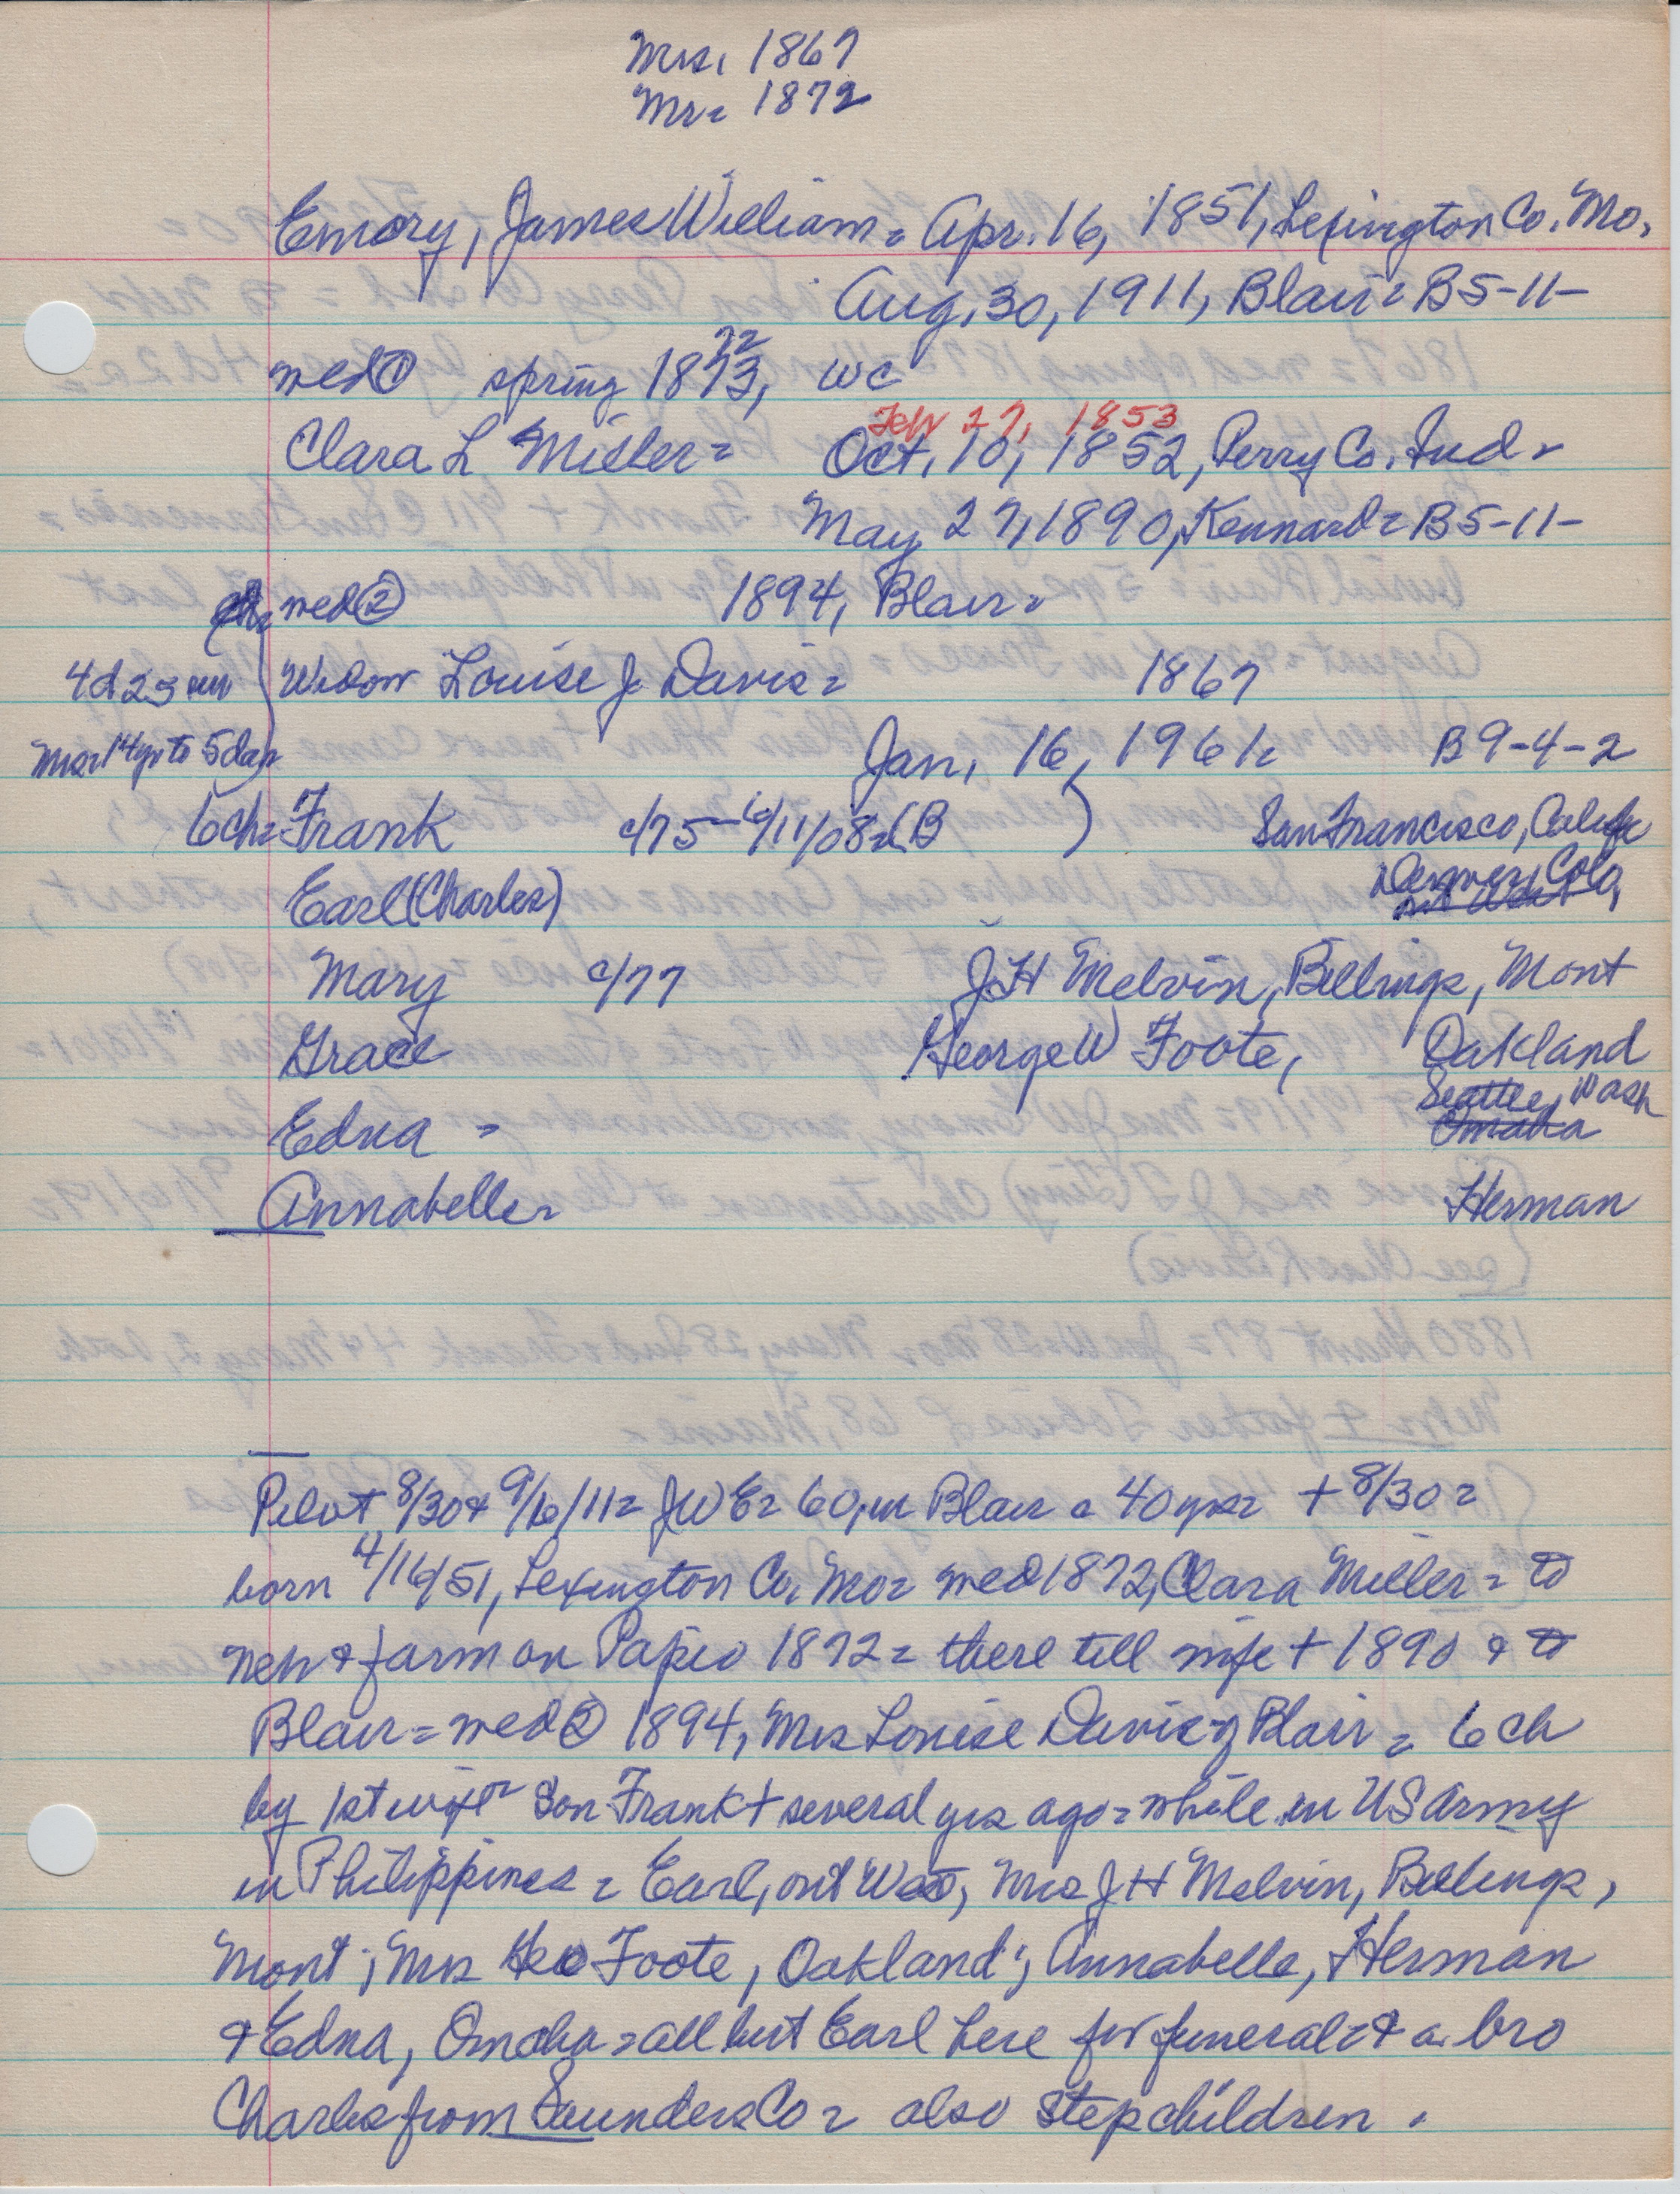 Mrs. 1867
Mr = 1872
Emory, James William = Apr. 16, 1851, Lexington Co. Mo.
Aug. 30, 1911, Blair = B5-11-
med ① spring 1873, WC
72
Feb 27, 1853
Clara L Miller = Oct. 10, 1852, Perry Co. Ind =
May 27, 1890, Kennard = B5-11-
med ② 1894, Blair =
4d 2s
Widow Louise J Davis = 1867
Mar 14 yr to 5 day
Jan. 16, 1961 = B9-4-2
6 ch = Frank c/75 - 6/11/08 = (B ) San Francisco, Calif
Earl (Charles) Denver, Colo.
out West
Mary c/77 J H Melvin, Billings, Mont
Grace George W Foote, Oakland
Edna = Seattle, Wash
Omaha
Annabelle = Herman
Pilot 8/30 & 9/6/11 = J W E = 60, in Blair c 40 yrs = + 8/30 =
born 4/16/51, Lexington Co. Mo = med 1872, Clara Miller = to
Neb & farm on Papio 1872 = there till wife + 1890 & to
Blair = med ② 1894, Mrs Louise Davis of Blair = 6 ch
by 1st wife = Son Frank + several yrs ago = while in US Army
in Philippines = Earl, out West, Mrs J H Melvin, Billings,
Mont; Mrs Geo Foote, Oakland; Annabelle, Herman
& Edna, Omaha = all but Earl here for funeral = & a bro
Charles from Saunders Co = also stepchildren.